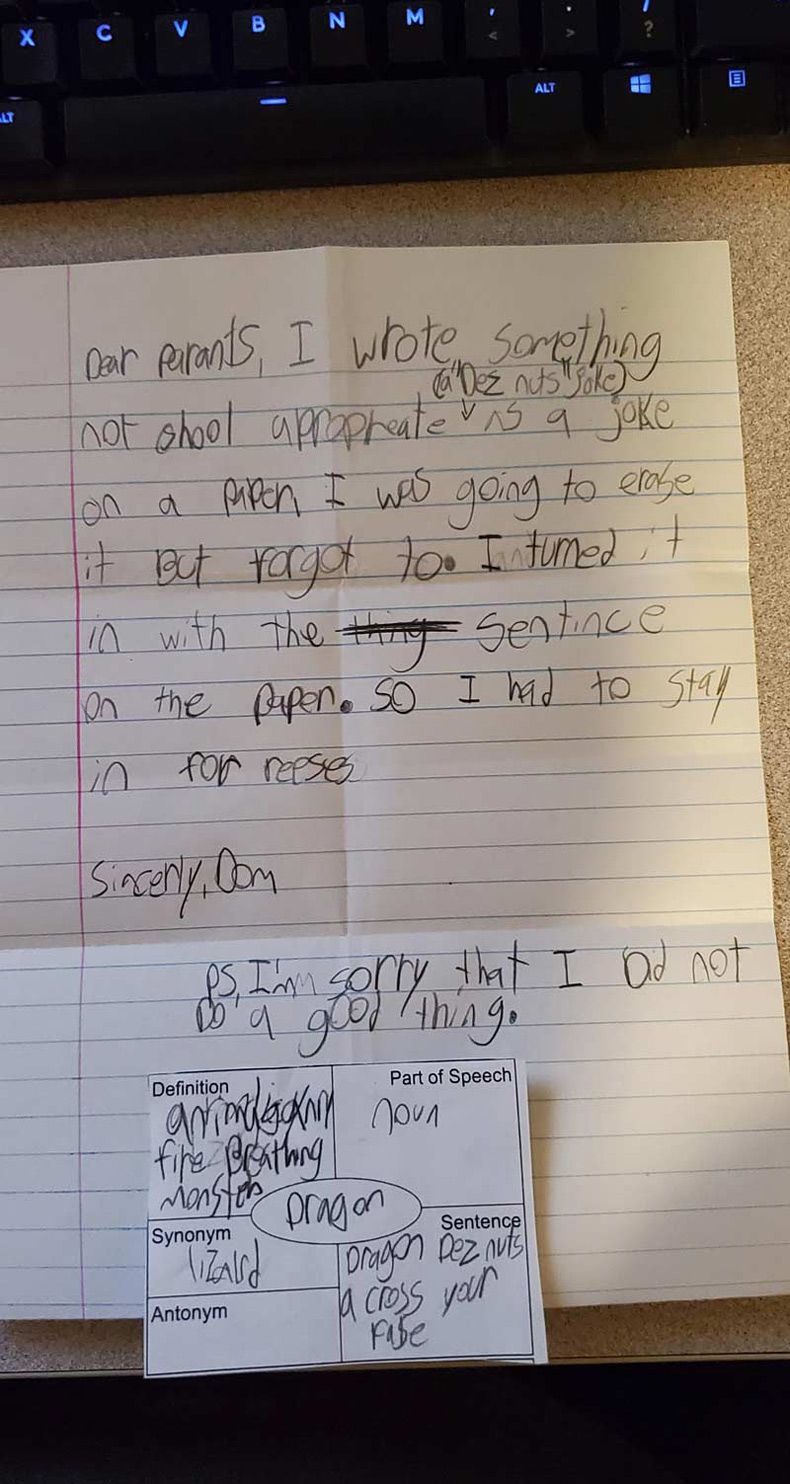 X C V B N M , < . > / ?
ALT ALT
Dear parants, I wrote something
(a "Dez nuts" joke)
not shool apropreate as a joke
on a paper, I was going to erase
it But forgot to. I turned it
in with the thing sentince
on the paper. so I had to stay
in for reeses
Sincerly, Dom
PS, I'm sorry that I did not
Do a good thing.
Definition
fire Breathing
monster
Part of Speech
noun
Dragon
Synonym
lizard
Sentence
Dragon Dez nuts
a cross your
fase
Antonym